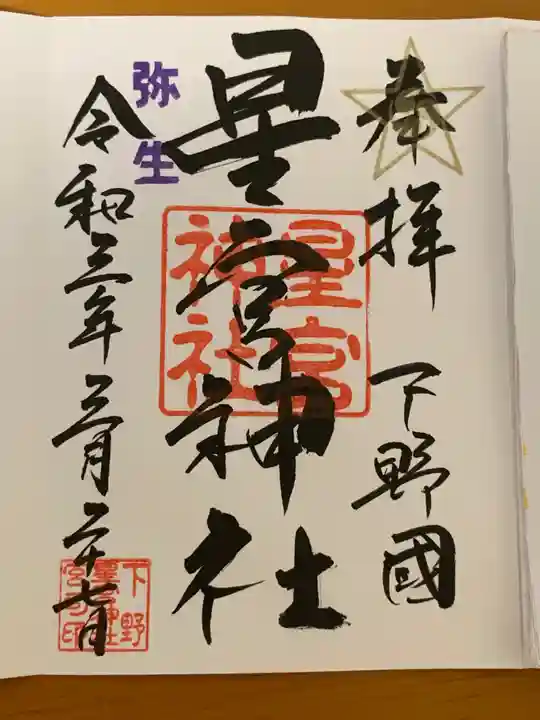 奉拝 下野國
星宮神社
星宮
神社
弥生
令和三年三月二十七日
下野
星宮神社
宮司印